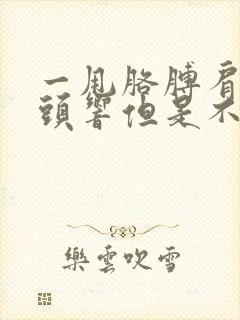 一甩胳膊肩
頭響但是不
樂雲吹雪